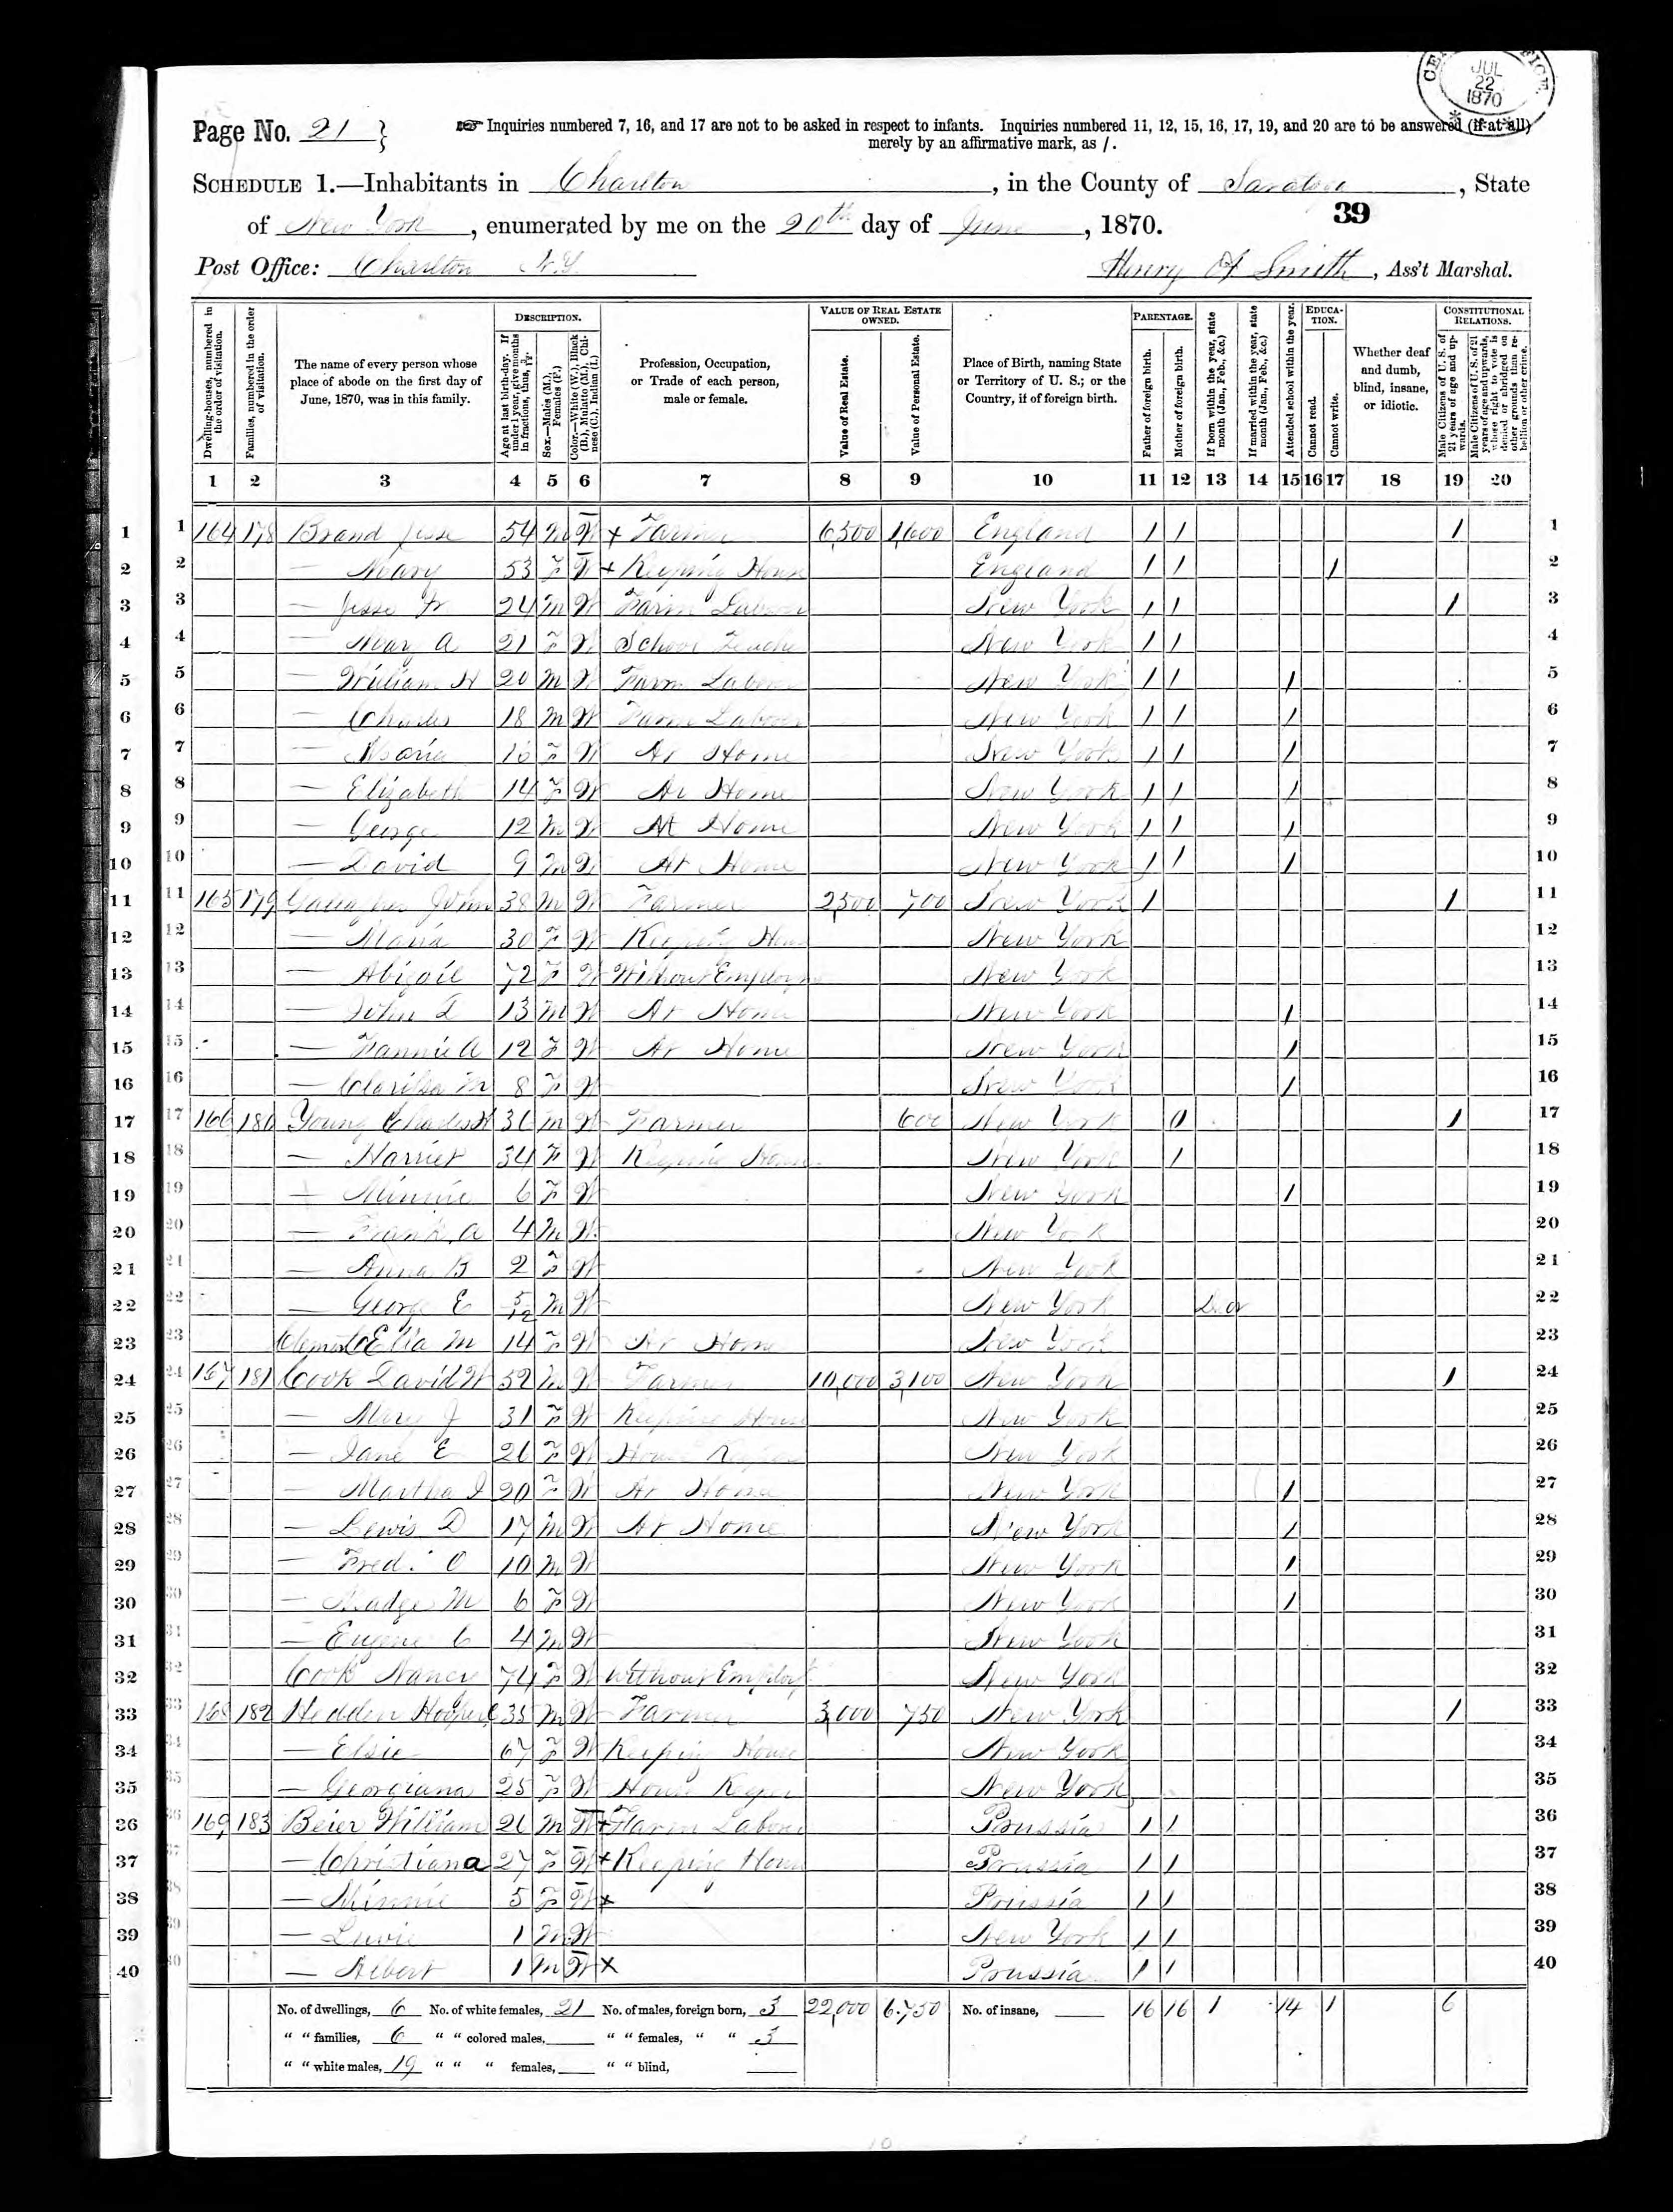 CE FICE
JUL
22
1870
Page No. 21 }
☞ Inquiries numbered 7, 16, and 17 are not to be asked in respect to infants. Inquiries numbered 11, 12, 15, 16, 17, 19, and 20 are to be answered (if at all)
merely by an affirmative mark, as /.
SCHEDULE 1.—Inhabitants in Charlton, in the County of Saratoga, State
of New York, enumerated by me on the 20th day of June, 1870.
39
Post Office: Charlton N.Y.
Henry A Smith, Ass't Marshal.
Dwelling-houses, numbered in the order of visitation.
Families, numbered in the order of visitation.
The name of every person whose place of abode on the first day of June, 1870, was in this family.
DESCRIPTION.
Age at last birth-day. If under 1 year, give months in fractions, thus, 3/12
Sex.—Males (M.), Females (F.)
Color.—White (W.), Black (B.), Mulatto (M.), Chinese (C.), Indian (I.)
Profession, Occupation, or Trade of each person, male or female.
VALUE OF REAL ESTATE OWNED.
Value of Real Estate.
Value of Personal Estate.
Place of Birth, naming State or Territory of U. S.; or the Country, if of foreign birth.
PARENTAGE.
Father of foreign birth.
Mother of foreign birth.
If born within the year, state month (Jan., Feb., &c.)
If married within the year, state month (Jan., Feb., &c.)
Attended school within the year.
EDUCATION.
Cannot read.
Cannot write.
Whether deaf and dumb, blind, insane, or idiotic.
CONSTITUTIONAL RELATIONS.
Male Citizens of U. S. of 21 years of age and upwards.
Male Citizens of U. S. of 21 years of age and upwards, whose right to vote is denied or abridged on other grounds than rebellion or other crime.
1 2 3 4 5 6 7 8 9 10 11 12 13 14 15 16 17 18 19 20
1 1 164 178 Brand Jesse 54 M W + Farmer 6,500 1,600 England / / / 1
2 2 — Mary 53 F W + Keeping House England / / / 2
3 3 — Jesse Jr 24 M W Farm Labor New York / / / 3
4 4 — Mary A 21 F W School Teache New York / / 4
5 5 — William H 20 M W Farm Labor New York / / / 5
6 6 — Charles 18 M W Farm Labor New York / / / 6
7 7 — Maria 16 F W At Home New York / / / 7
8 8 — Elizabeth 14 F W At Home New York / / / 8
9 9 — George 12 M W At Home New York / / / 9
10 10 — David 9 M W At Home New York / / / 10
11 11 165 179 Gallagher John 38 M W Farmer 2,500 700 New York / / 11
12 12 — Maria 30 F W Keeping Hous New York 12
13 13 — Abigail 72 F W Without Employm New York 13
14 14 — John D 13 M W At Home New York / 14
15 15 — Fannie A 12 F W At Home New York / 15
16 16 — Clarissa M 8 F W New York / 16
17 17 166 180 Young Charles H 36 M W Farmer 600 New York 0 / 17
18 18 — Harriet 34 F W Keeping House New York / 18
19 19 — Minnie 6 F W New York / 19
20 20 — Frank A 4 M W New York 20
21 21 — Anna B 2 F W New York 21
22 22 — George E 5/12 M W New York 22
23 23 Ella M 14 F W At Home New York 23
24 24 167 181 Cook David W 52 M W Farmer 10,000 3,100 New York / 24
25 25 — Mary J 31 F W Keeping House New York 25
26 26 — Jane E 26 F W House Keeper New York 26
27 27 — Martha J 20 F W At Home New York / 27
28 28 — Lewis D 17 M W At Home New York / 28
29 29 — Fred. O 10 M W New York / 29
30 30 — Madge M 6 F W New York / 30
31 31 — Eugene C 4 M W New York 31
32 32 Cook Nancy 74 F W Without Employt New York 32
33 33 168 182 Hedden Hooper C 35 M W Farmer 3,000 750 New York / 33
34 34 — Elsie 67 F W Keeping House New York 34
35 35 — Georgiana 25 F W House Keper New York 35
36 36 169 183 Beier William 26 M W + Farm Labor Prussia / / 36
37 37 — Christiana 27 F W + Keeping Hous Prussia / / 37
38 38 — Minnie 5 F W + Prussia / / 38
39 39 — 1 M W New York / / 39
40 40 — Albert 1 M W + Prussia / / 40
No. of dwellings, 6 No. of white females, 21 No. of males, foreign born, 3 22,000 6.750 No. of insane, 16 16 1 14 1 6
" " families, 6 " " colored males, " " females, " " 3
" " white males, 19 " " " females, " " blind,